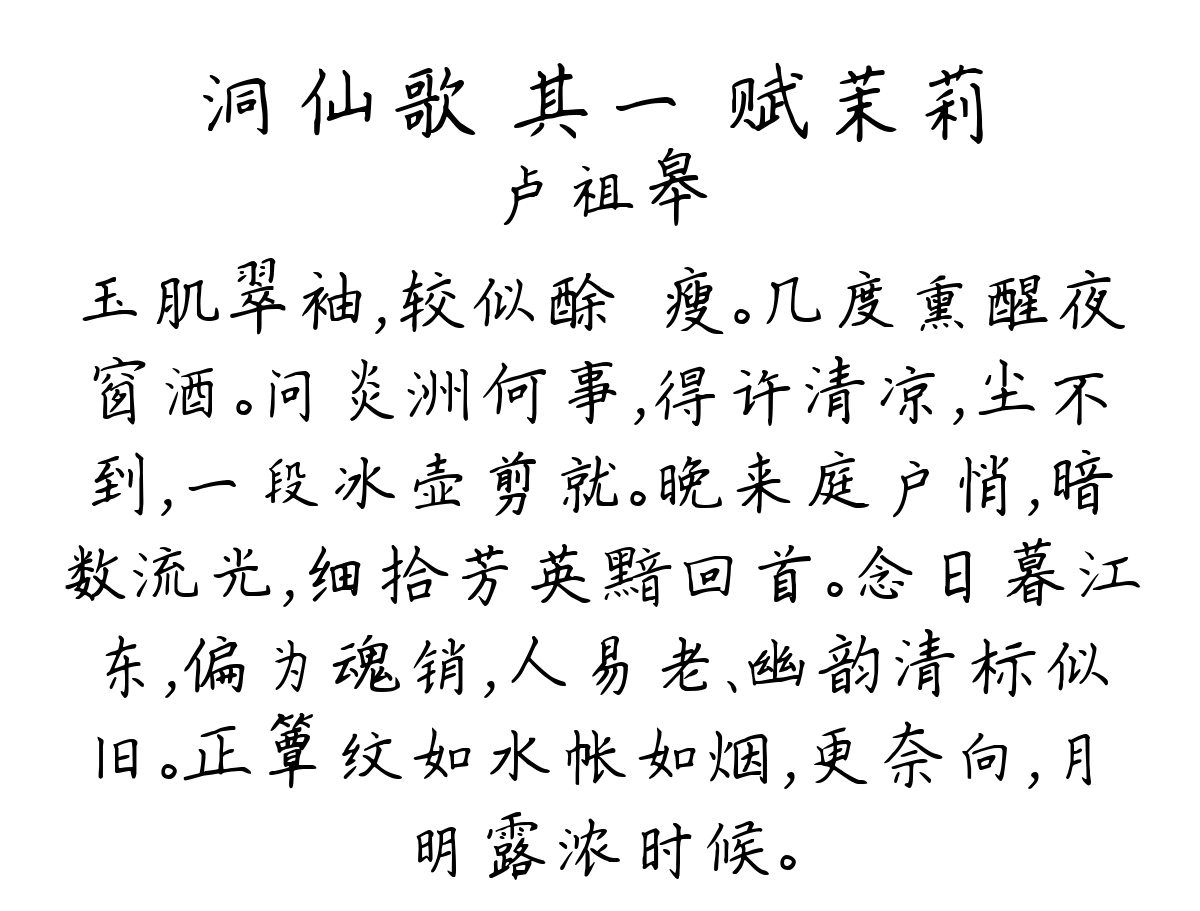 洞仙歌 其一 赋茉莉
卢祖皋
玉肌翠袖,较似酴 瘦。几度熏醒夜
窗酒。问炎洲何事,得许清凉,尘不
到,一段冰壶剪就。晚来庭户悄,暗
数流光,细拾芳英黯回首。念日暮江
东,偏为魂销,人易老、幽韵清标似
旧。正簟纹如水帐如烟,更奈向,月
明露浓时候。